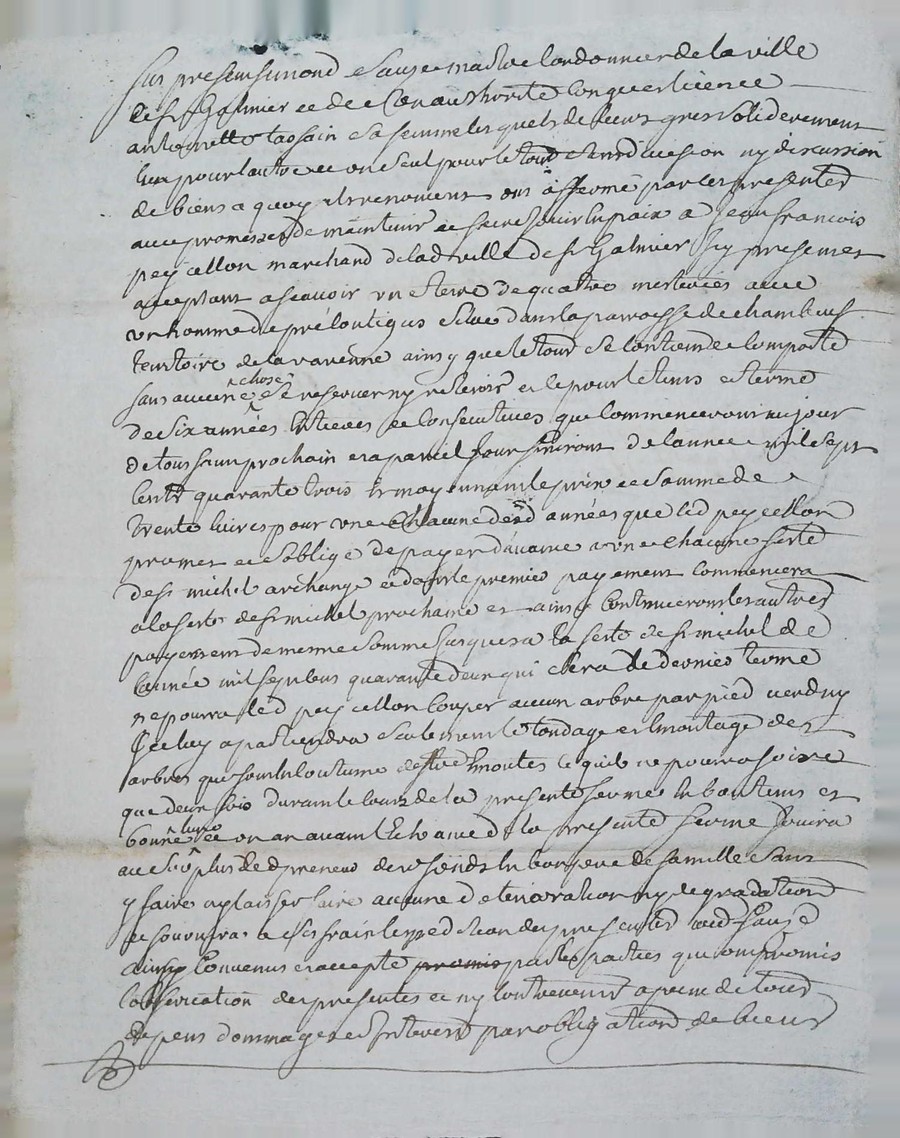 fut present simond sauze maitre cordonnier de la ville
de St Galmier et de son authorité conquerlicence
antoinette tassain sa femme lesquels de leurs grés solidérement
l'un pour l'autre et un seul pour le tout sans division ny discussion
de biens a quoy ils renoncent ont afferme par ces presentes
avec promesse de maintenir et faire jouir en paix a Jean francois
peycellon marchand de lad ville de St Galmier icy present et
acceptant ascavoir une terre de quatre mesterées avec
un homme de pré contigus scitué dans la paroisse de chambeuf
territoire de la varenne ainsy que le tout se contient et comporte
sans aucune chose se reserver ny retenir et le pour le tems et terme
de six années entieres et consecutives que commenceront au jour
de toussaint prochain et a pareil jour finiront de l'année mil sept
cents quarante trois et moyennant le prix et somme de
trente livres pour une chacune desd années que led peycellon
promet et s'oblige de payer d'avance a une chacune feste
de St michel archange et dont le premier payement commencera
a la feste de St michel prochaine et ainsy continueront les autres
payements de meme somme jusques a la feste de St michel de
l'année mil sept cens quarante deux qui sera le dernier terme
ne pourra led peycellon couper aucun arbre par pied verd ny
sec luy apartiendra seulement le tondage et emontage des
arbres qui sont en coutume destre emontés ce quil ne pourra faire
que deux fois durant le cours de la presente ferme en bon tems et
bonne lune et un an avant l'echeance de la presente ferme jouira
au surplus led preneur desd fonds en bon pere de famille sans
y faire ny laisser faire aucune deterioration ny degradation
et fournira a ses frais l'expedition des presentes aud Sauze
ainsy convenu et accepté promis par les parties qui ont promis
l'observation des presentes et ny contrevenir a peine de tous
depens dommages et interets par obligation de biens